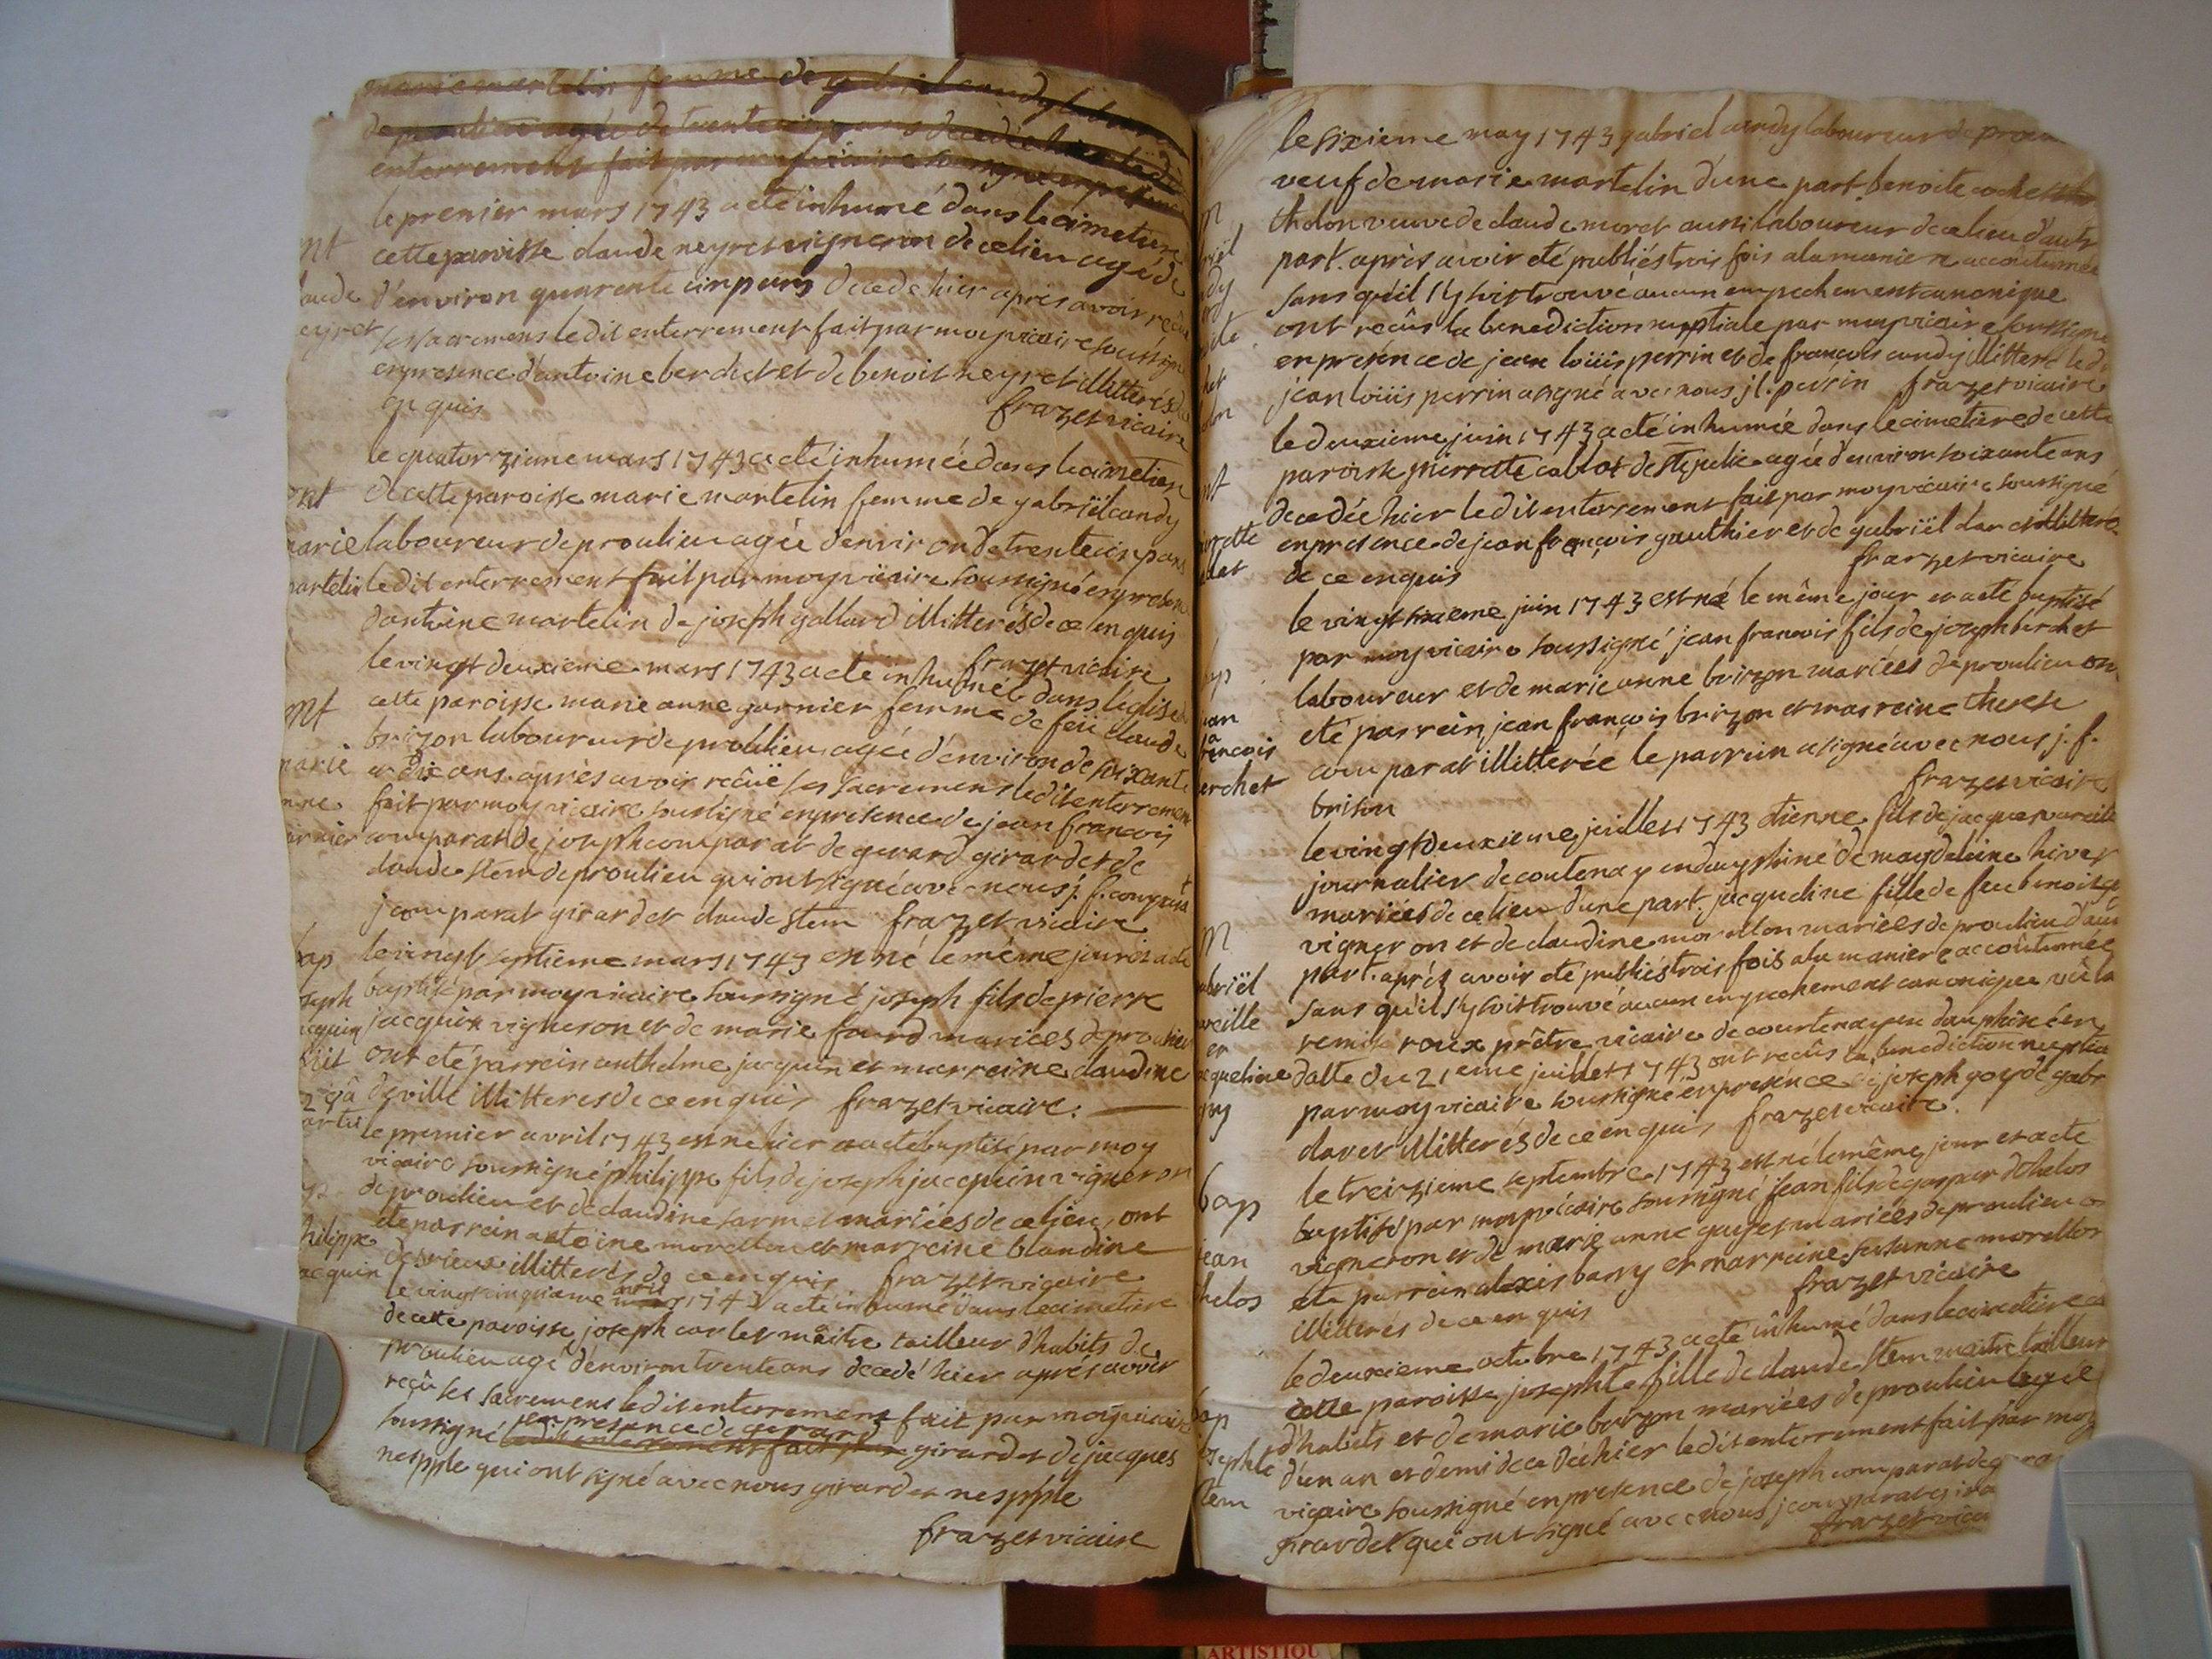 marie martelin femme de gabriel candy laboureur
de proulieu agée de trente cinq ans decedée hier ledit
enterrement fait par moy vicaire soussigné en presence
le premier mars 1743 a eté inhumé dans le cimetiere
cette paroisse claude neyret vigneron de ce lieu agé de
d'environ quarente cinq ans decedé hier apres avoir reçu
ses sacremens ledit enterrement fait par moy vicaire soussigné
en presence d'antoine berchet et de benoit neyret illitterés de
ce enquis
frazet vicaire
nt
laude
eyret
le quatorzieme mars 1743 a eté inhumée dans le cimetiere
de cette paroisse marie martelin femme de gabriël candy
laboureur de proulieu agée d'environ de trente cinq ans
ledit enterrement fait par moy vicaire soussigné en presence
d'antoine martelin de joseph gallard illitterés de ce enquis
frazet vicaire
ont
marie
martelin
le vingt deuxieme mars 1743 a eté inhumée dans l'église de
cette paroisse marie anne garnier femme de feü claude
brizon laboureur de proulieu agée d'environ de soixante
et dix ans après avoir reçüe ses sacremens ledit enterrement
fait par moy vicaire soussigné en presence de jean francois
comparat de joseph comparat de gerard girardet de
claude stem de proulieu qui ont signé avec nous j. f. comparat
j comparat girardet claude stem frazet vicaire
mt
marie
nne
arnier
le vingt septieme mars 1743 est né le même jour et a eté
baptisé par moy vicaire soussigné joseph fils de pierre
jacquin vigneron et de marie fourd mariées de proulieu
ont eté parrein anthelme jacquin et marreine claudine
deville illitteres de ce enquis frazet vicaire.
bap
oseph
acquin
le premier avril 1743 est né hier et a eté baptisé par moy
vicaire soussigné philippe fils de joseph jacquin vigneron
de proulieu et de claudine sarmet mariées de ce lieu, ont
eté parrein antoine morellon et marreine blandine
desvieux illitterés de ce enquis frazet vicaire
hilippe
acquin
le vingt cinquieme mars avril 1743 a eté inhumé dans le cimetiere
de cette paroisse joseph carlet maitre tailleur d'habits de
proulieu agé d'environ trente ans decedé hier après avoir
reçu ses sacremens ledit enterrement fait par moy vicaire
soussigné ledit enterrement fait par en presence de gerard girardet de jacques
nesple qui ont signé avec nous girardet nespple
frazet vicaire
le sixieme may 1743 gabriel candy laboureur de proulieu
veuf de marie martelin d'une part, benoite cochet
tholon veuve de claude moret aussi laboureur de ce lieu d'autre
part. après avoir eté publiés trois fois a la maniere accoutumée
sans qu'il s'y soit trouvé aucun empechement canonique
ont reçüs la benediction nuptiale par moy vicaire soussigné
en presence de jean loüis perrin et de francois candy illitteré ledit
jean loüis perrin a signé avec nous j l. perrin frazet vicaire
le deuxieme juin 1743 a eté inhumée dans le cimetiere de cette
paroisse pierrette calxat de ste julie agée d'environ soixante ans
decedée hier ledit enterrement fait par moy vicaire soussigné
en presence de jean francois gauthier et de gabriël davet illitterés
de ce enquis
frazet vicaire
le vingt sixieme juin 1743 est né le même jour et a eté baptisé
par moy vicaire soussigné jean francois fils de joseph berchet
laboureur et de marie anne brizon mariées de proulieu ont
eté parrein jean françois brizon et marreine therese
comparat illitterée le parrein a signé avec nous j. f.
brison
frazet vicaire
an
francois
erchet
le vingt deuxieme juillet 1743 etienne fils de jacque pareille
journalier de coutenay en dauphiné de magdeleine hiver
mariées de ce lieu d'une part, jacqueline fille de feu benoit goy
vigneron et de claudine morellon mariées de proulieu d'autre
part. après avoir eté publiés trois fois a la maniere accoutumée
sans qu'il s'y soit trouvé aucun empechement canonique vû la
remise roux prêtre vicaire de courtenay en dauphiné en
datte du 21eme juillet 1743 ont reçûs la benediction nuptiale
par moy vicaire soussigné en presence de joseph goy de gabriel
davet illitterés de ce enquis frazet vicaire.
M
abriël
areille
et
acqueline
goy
le treizieme septembre 1743 est né le même jour et a eté
baptisé par moy vicaire soussigné jean fils de gaspar dthelos
vigneron et de marie anne guyet mariées de proulieu ont
eté parrein alexis barry et marreine susanne morellon
illitterés de ce enquis
frazet vicaire
bap
jean
thelos
le deuxieme octobre 1743 a eté inhumé dans le cimetiere de
cette paroisse josephte fille de claude stem maitre tailleur
d'habits et de marie brizon mariées de proulieu agée
d'un an et demi decedée hier ledit enterrement fait par moy
vicaire soussigné en presence de joseph comparat de gerard
girardet qui ont signé avec nous j comparat gira
frazet vicai
bap
osephte
stem
ARTISTIQU